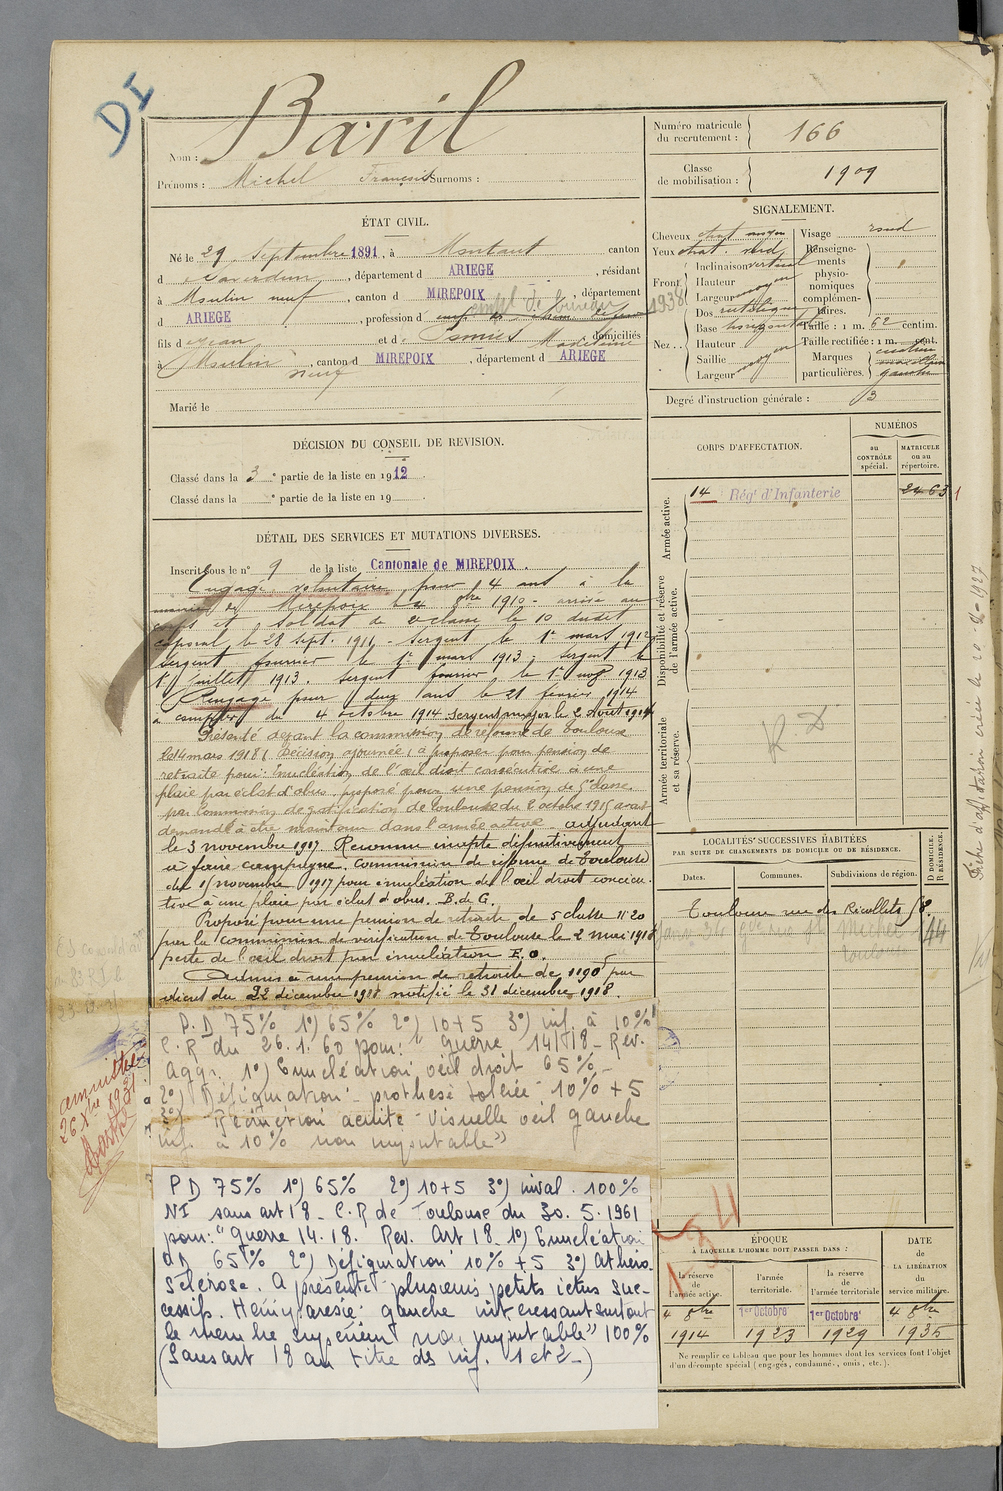 DI
Nom : Baril
Prénoms : Michel François Surnoms :
Numéro matricule du recrutement : 166
Classe de mobilisation : 1909
ÉTAT CIVIL.
Né le 29 Septembre 1891, à Montaut canton
d Saverdun, département d ARIEGE, résidant
à Moulin neuf, canton d MIREPOIX, département
d ARIEGE, profession d empl. de bureau 1938
fils d Jean et d domiciliés
à Moulin neuf, canton d MIREPOIX, département d ARIEGE
Marié le
DÉCISION DU CONSEIL DE REVISION.
Classé dans la 3e partie de la liste en 1912
Classé dans la e partie de la liste en 19
DÉTAIL DES SERVICES ET MUTATIONS DIVERSES.
Inscrit sous le n° 9 de la liste Cantonale de MIREPOIX.
Engagé volontaire pour 4 ans à la
mairie de Mirepoix le 4 8bre 1910 - arrivé au
corps et soldat de 2e classe le 10 dudit
caporal le 28 sept. 1911 - sergent le 1er mars 1912
sergent fourrier le 1er mars 1913; sergent le
1er juillet 1913. sergent fourrier le 1er nov 1913
Rengagé pour deux ans le 21 février 1914
à compter du 4 octobre 1914 sergent major le 2 août 1914
Présenté devant la commission de réforme de Toulouse
le 14 mars 1918 ( Décision ajournée, à proposer pour pension de
retraite pour: énucléation de l'œil droit consécutive à une
plaie par éclat d'obus. proposé pour une pension de 5e classe
par commission de rectification de Toulouse du 2 octobre 1915 avait
demandé à être maintenu dans l'armée active adjudant
le 3 novembre 1917. Reconnu inapte définitivement
à faire campagne. Commission de réforme de Toulouse
du 11 novembre 1917 pour énucléation de l'œil droit consécu-
tive à une plaie par éclat d'obus. B. de G.
Proposé pour une pension de retraite de 5 classe N° 20
par la Commission de vérification de Toulouse le 2 mai 1918
perte de l'œil droit par énucléation E.O.
Admis à une pension de retraite de 1190f par
décret du 22 décembre 1918 notifié le 31 décembre 1918.
P.D 75% 1°) 65% 2°) 10+5 3°) inf. à 10%
C.R du 26.1.60 pour: " guerre 14/18 - Rev.
Aggr. 1°) Enucléation œil droit 65% -
2°) Défiguration - prothèse tolérée - 10% + 5
3°) Réduction acuité - visuelle œil gauche
inf. à 10% non imputable"
PD 75% 1°) 65% 2°) 10+5 3°) inval. 100%
NI sans art 18 - C.R de Toulouse du 30.5.1961
pour: " guerre 14.18. Rev. Art 18. 1°) Enucléation
OD 65% 2°) Défiguration 10% +5 3°) Athéro-
sclérose. A présenté plusieurs petits ictus suc-
cessifs. Hémiparésie gauche intéressant surtout
le membre supérieur non imputable" 100%
(Sans art 18 au titre des inf. 1 et 2 -)
amnistié
26 Xbre 1931
SIGNALEMENT.
Cheveux chat moyen
Yeux chat.
Front Inclinaison vertical
Hauteur moyen
Largeur moyen
Nez.. Dos rectiligne
Base horizontal
Hauteur
Saillie moyen
Largeur
Visage rond
Renseignements physionomiques complémentaires.
Taille : 1 m. 62 centim.
Taille rectifiée : 1 m. cent.
Marques particulières.
Degré d'instruction générale : 3
CORPS D'AFFECTATION.
NUMÉROS
au CONTRÔLE spécial.
MATRICULE ou au répertoire.
Armée active.
14 Régt d'Infanterie 2463
Disponibilité et réserve de l'armée active.
Armée territoriale et sa réserve.
R.D
LOCALITÉS SUCCESSIVES HABITÉES
PAR SUITE DE CHANGEMENTS DE DOMICILE OU DE RÉSIDENCE.
Dates. Communes. Subdivisions de région. D DOMICILE. R RÉSIDENCE.
Toulouse rue des Récollets 18.
Toulouse
ÉPOQUE
À LAQUELLE L'HOMME DOIT PASSER DANS :
la réserve de l'armée active. l'armée territoriale. la réserve de l'armée territoriale
DATE de LA LIBÉRATION du service militaire.
4 8bre 1914
1er Octobre 1923
1er Octobre 1929
4 8bre 1936
Ne remplir ce tableau que pour les hommes dont les services font l'objet
d'un décompte spécial (engagés, condamné., omis, etc.).